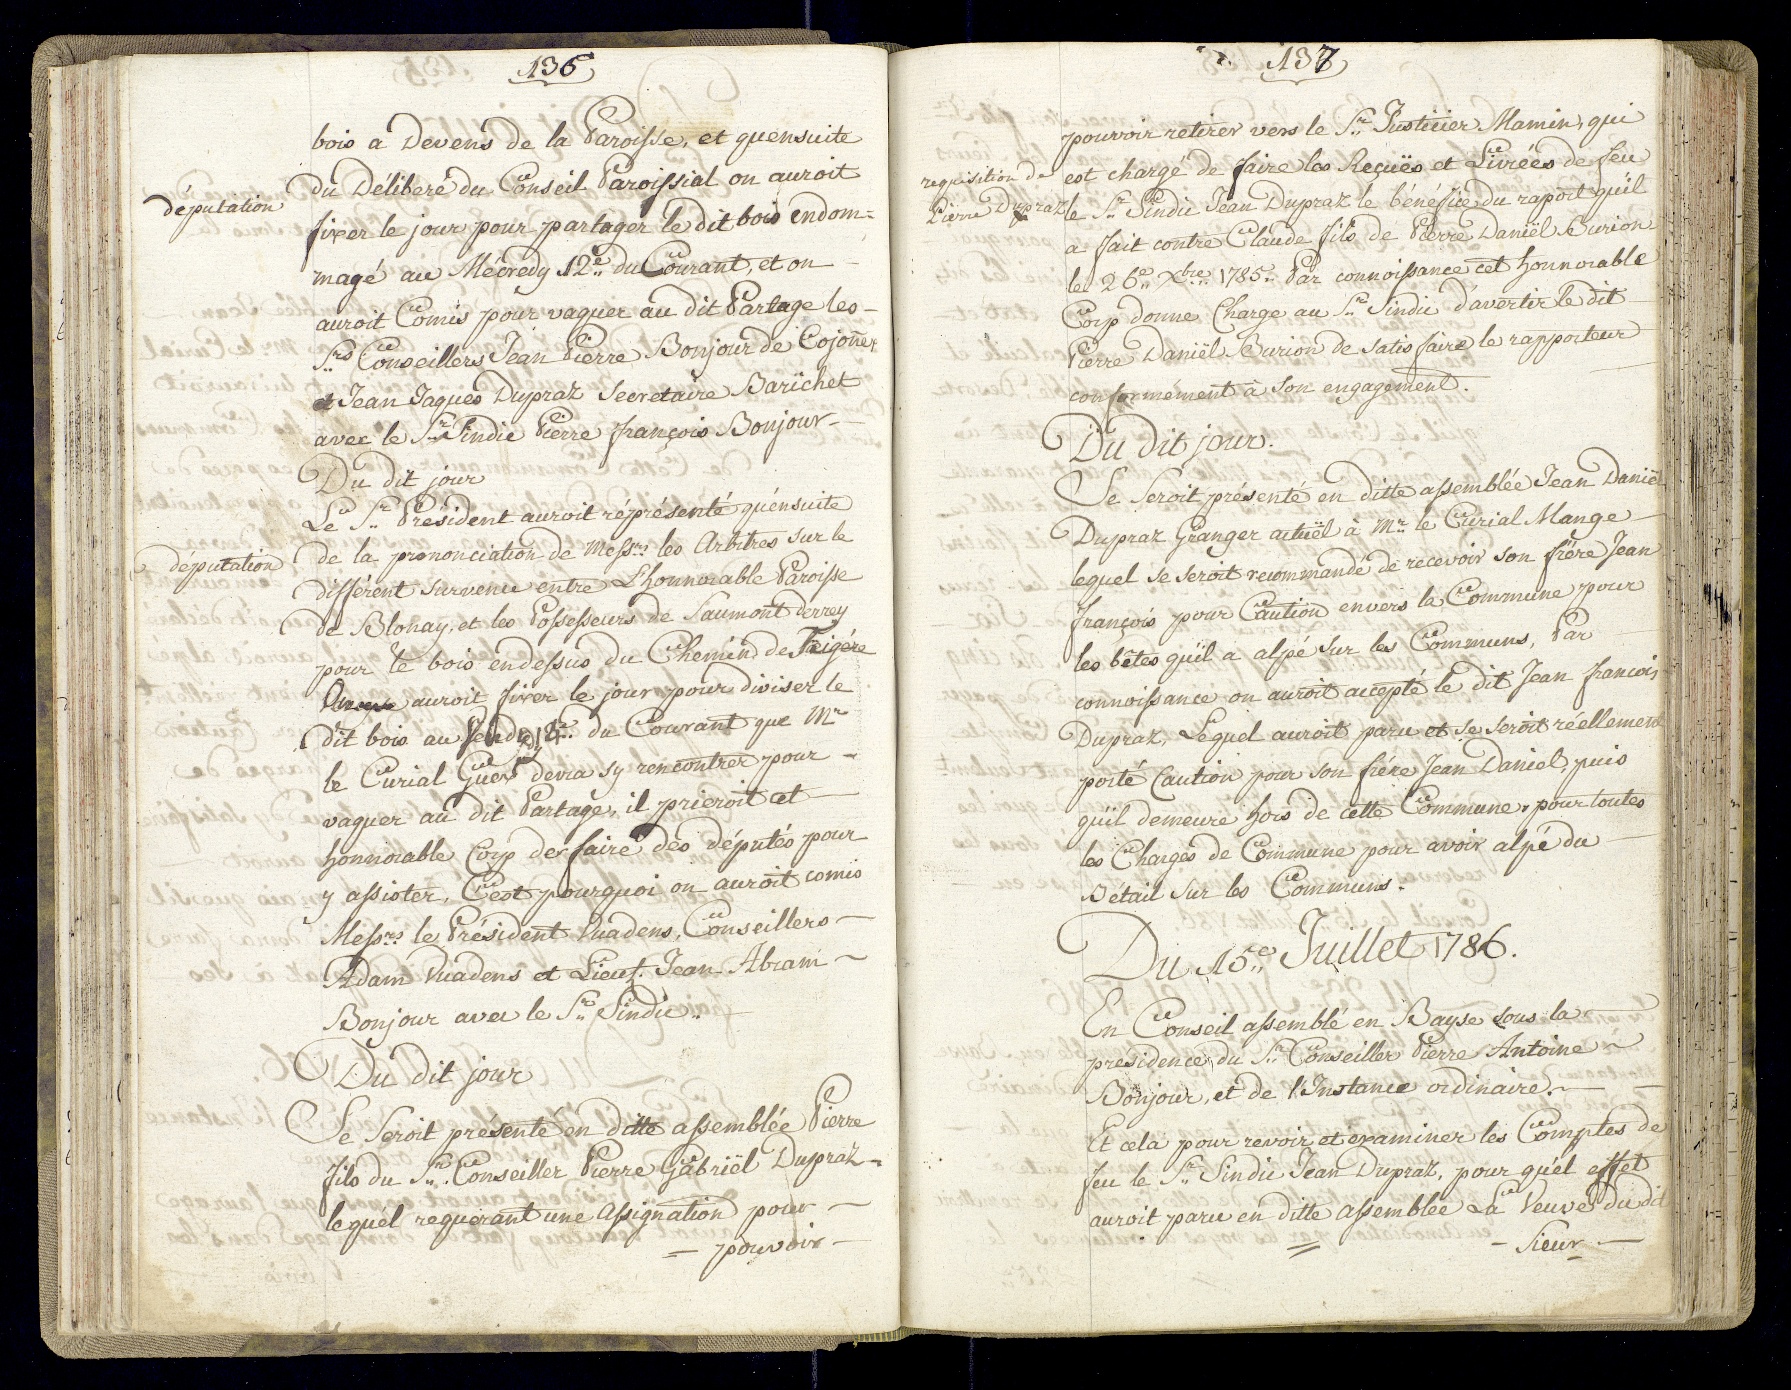 136
bois a Devens de la Paroisse, et quensuite
du Déliberé du Conseil Paroissial on auroit
députation
fixer le jour pour partager le dit bois endom=
magé au Mécredy 12e du Courant, et on
auroit Comis pour vaquer au dit Partage les
Srs Conseillers Jean Pierre Bonjour de Cojonex
et Jean Jaques Dupraz Secretaire Barichet
avec le Sr Sindic Pierre françois Bonjour
Du dit jour
Le Sr Président auroit réprésenté quénsuite
députation
de la prononciation de Messrs les Arbitres sur le
différent survenu entre L'honnorable Paroisse
de Blonay, et les Possesseurs de Saumont derrey
pour le bois endessus du Chemin de Feigére
auroit fixer le jour pour diviser le
dit bois au 18e du Courant que Mr
le Curial devra sy rencontrer pour
vaquer au dit Partage, il prieroit cet
honnorable Corp de faire des députés pour
y assister, C'est pourquoi on auroit comis
Messrs le Président Vuadens, Conseillers
Adam Vuadens et Lieut. Jean Abram
Bonjour avec le Sr Sindic.
Du dit jour
Se Seroit présenté en ditte assemblée Pierre
fils du Sr Conseiller Pierre Gabriël Dupraz
lequél requerant une Assignation pour
= pouvoir
137
pouvoir retirer vers le Sr Justicier Mamin, qui
requisition de
est chargé de faire les Reçuës et Livrées de feu
Pierre Dupraz
le Sr Sindic Jean Dupraz le bénéfice du raport qu'il
a fait contre Claude fils de Pierre Daniël Burion
le 26e Xbre 1785. Par connoissance cet honnorable
Corp donne Charge au Sr Sindic d'avertir le dit
Pierre Daniël Burion de satisfaire le rapporteur
conformément à son engagement.
Du dit jour.
Se Seroit présenté en ditte assemblée Jean Daniël
Dupraz Granger actuël à Mr le Curial Mange
lequel se seroit recommandé de recevoir son frére Jean
françois pour Caution envers la Commune pour
les bêtes qu'il a alpé sur les Communs, Par
connoissance on auroit accepté le dit Jean francois
Dupraz, Lequel auroit paru et se seroit réellement
porté Caution pour son frére Jean Daniel, puis
qu'il demeure hors de cette Commune, pour toutes
les Charges de Commune pour avoir alpé du
Détail sur les Communs.
Du 15e Juillet 1786.
En Conseil assemblé en Bayse sous la
presidence du Sr Conseiller Pierre Antoine
Bonjour, et de l'Instance ordinaire.
Et cela pour revoir et examiner les Comptes de
feu le Sr Sindic Jean Dupraz, pour quel effet
auroit paru en ditte assemblée La Veuve du dit
= - Sieur